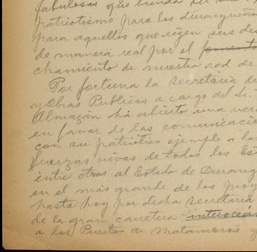 fabulosas que brinda
patriotismo para los duranguenses
para aquellos que rigen sus des
de manera real por el fomento
chamiento de nuestra red de
Por fortuna la secretaría de
y Obras Publicas a cargo del
Almazán ha abierto una
en favor de las comunicacio
con su patriótico ejemplo a las
fuerzas vivas de todos los Es
entre otros al Estado de Durang
en el mas grande de los proy
hasta hoy por dicha secretaría
de la gran carretera interocea
a los Puertos de Matamoros y